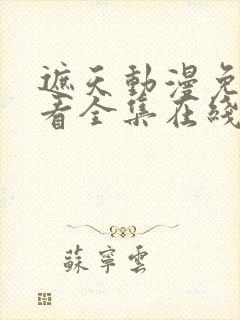 遮天動漫免
看全集在綫
蘇寧雲